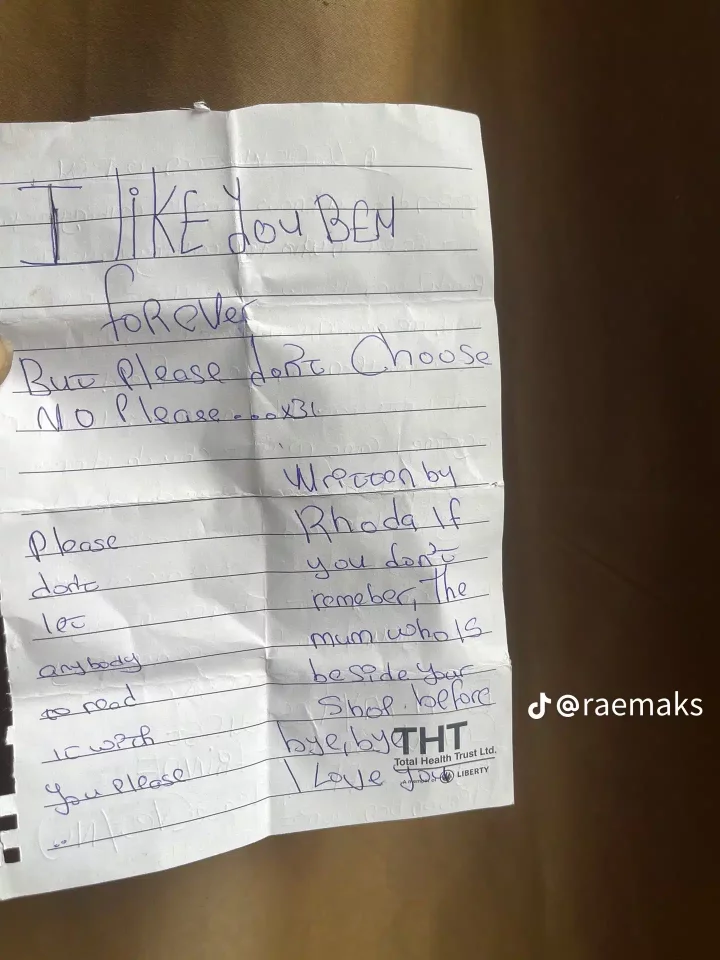 I liKE You BEN
foREVer
But Please don't Choose
No Please...x31
Please
don't
let
anybody
to read
it with
you please
..
Written by
Rhoda If
you don't
remeber, The
mum who Is
beside your
Shop. before
bye, bye
I Love you
THT
Total Health Trust Ltd.
A member of LIBERTY
@raemaks